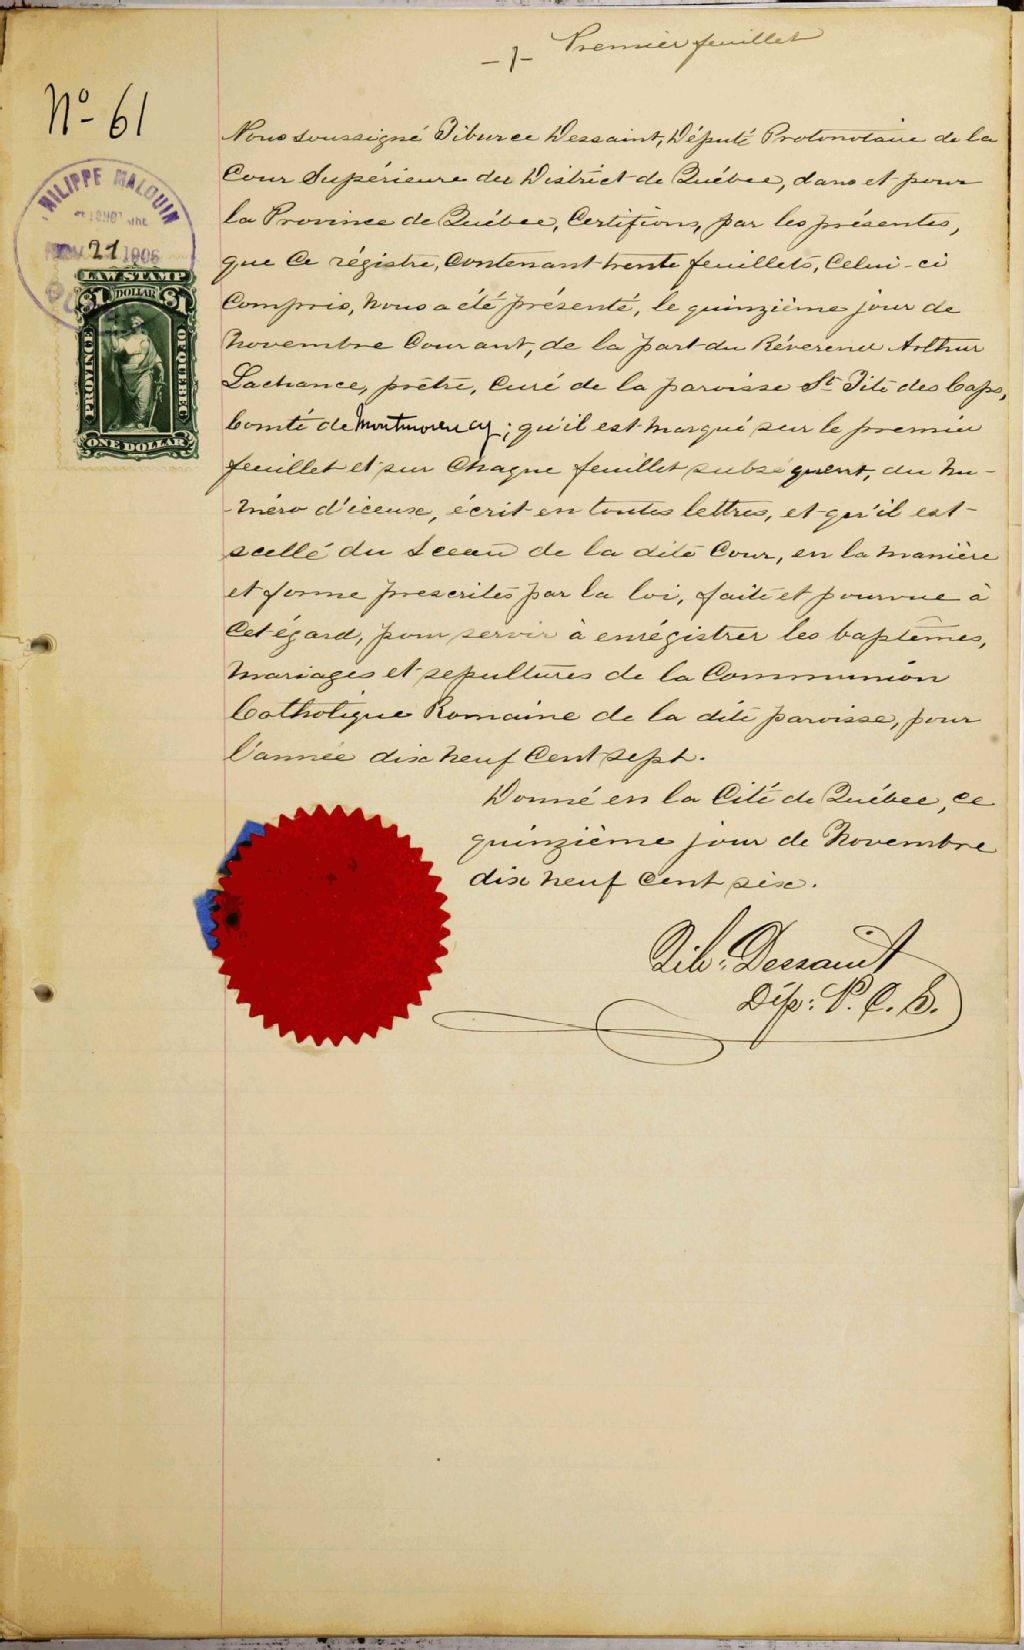 -1- Premier feuillet
No- 61
PHILIPPE MALOUIN
NOV 21 1906
LAW STAMP
$1 DOLLAR $1
PROVINCE OF QUEBEC
ONE DOLLAR
Nous soussigné Tiburce Dessaint, Député Protonotaire de la
Cour Supérieure du District de Québec, dans et pour
la Province de Québec, Certifions, par les présentes,
que Ce régistre, Contenant trente feuillets, Celui-ci
Compris, Nous a été présenté, le quinzième jour de
Novembre Courant, de la part du Réverend Arthur
Lachance, prêtre, Curé de la paroisse St Tite des Caps,
Comté de Montmorency; qu'il est Marqué sur le premier
feuillet et sur Chaque feuillet subséquent, du Nu-
-méro d'iceux, écrit en toutes lettres, et qu'il est
scellé du Sceau de la dite Cour, en la Manière
et forme prescrites par la loi, faite et pourvue à
Cet égard, pour servir à enrégistrer les baptêmes,
Mariages et sepultures de la Communion
Catholique Romaine de la dite paroisse, pour
l'année dix Neuf Cent sept.
Donné en la Cité de Québec, Ce
quinzième jour de Novembre
dix Neuf Cent six.
Tib: Dessaint
Dép: P. C. S.